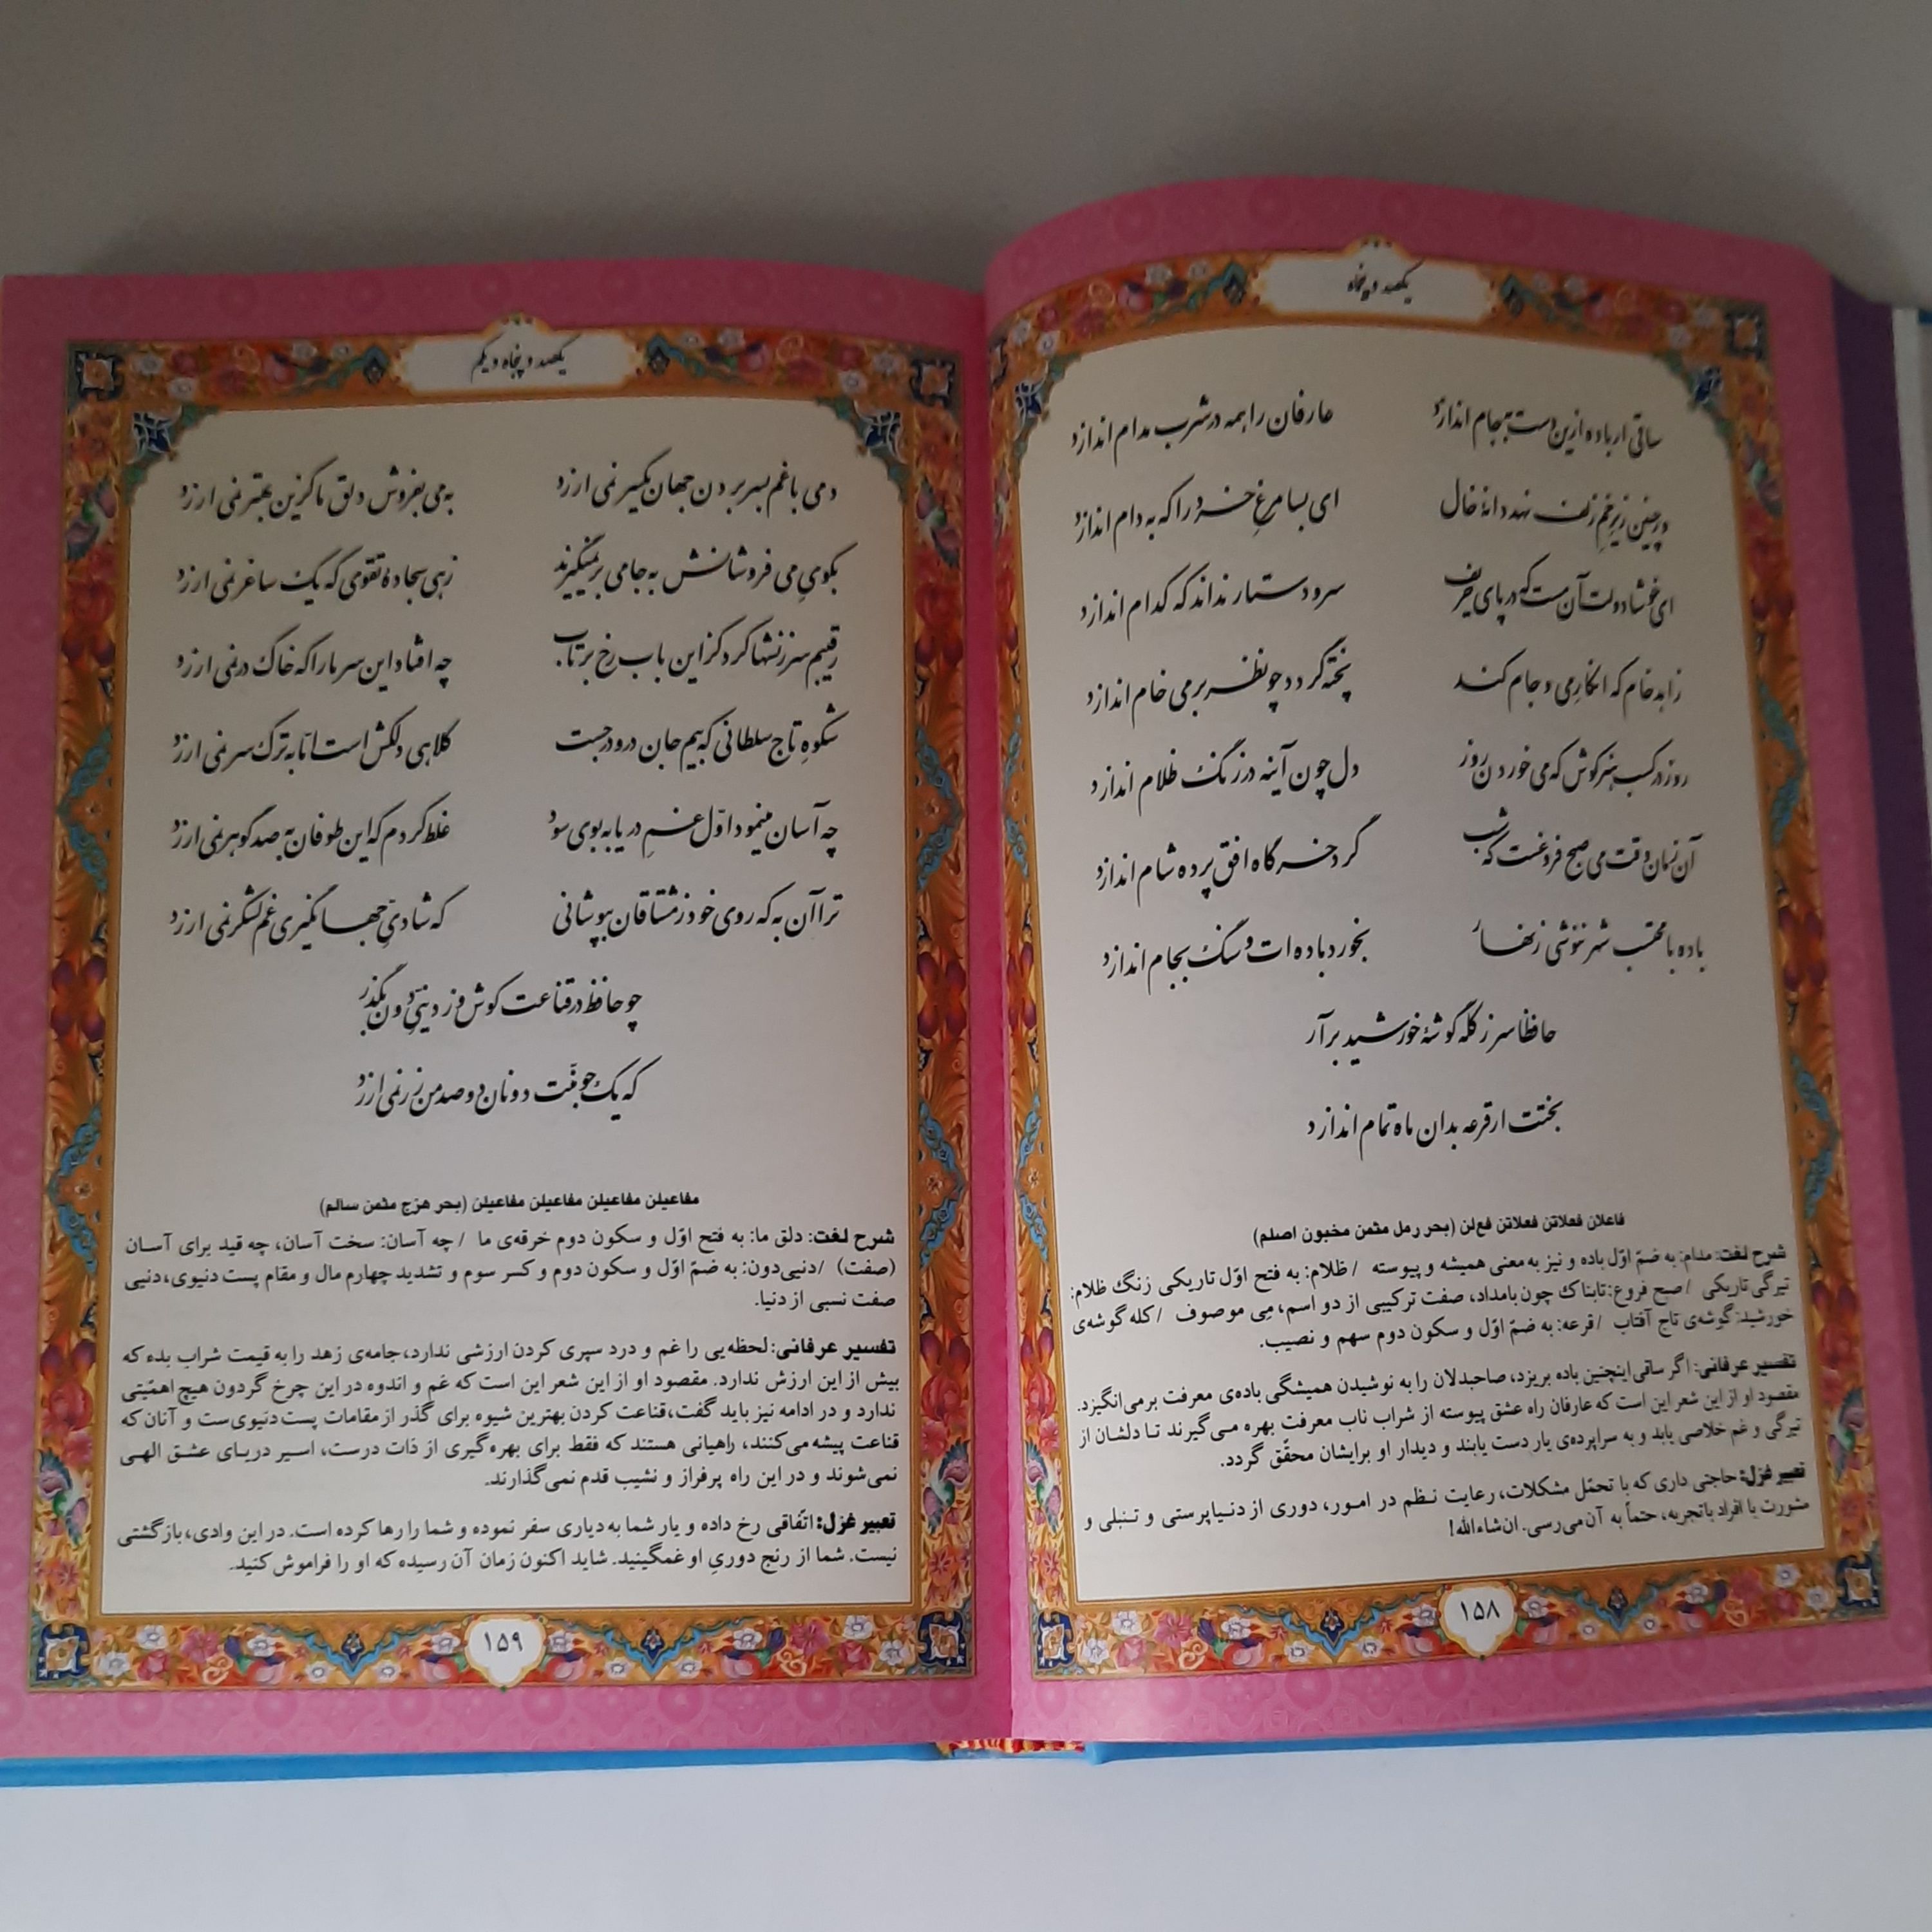 یکصد و پنجاه
ساقی ار باده ازین دست به جام اندازد عارفان را همه در شرب مدام اندازد
ور چنین زیر خم زلف نهد دانهٔ خال ای بسا مرغ خرد را که به دام اندازد
ای خوشا دولت آن مست که در پای حریف سر و دستار نداند که کدام اندازد
زاهد خام که انکار می و جام کند پخته گردد چو نظر بر می خام اندازد
روز در کسب هنر کوش که می خوردن روز دل چون آینه در زنگ ظلام اندازد
آن زمان وقت می صبح فروغست که شب گرد خرگاه افق پرده شام اندازد
باده با محتسب شهر ننوشی زنهار بخورد باده‌ات و سنگ بجام اندازد
حافظا سر ز کله گوشهٔ خورشید برآر
بختت ار قرعه بدان ماه تمام اندازد
فاعلان فعلاتن فعلاتن فع‌لن (بحر رمل مثمن مخبون اصلم)
شرح لغت: مدام: به ضمّ اوّل باده و نیز به معنی همیشه و پیوسته / ظلام: به فتح اوّل تاریکی زنگ ظلام:
تیرگی تاریکی / صبح فروغ: تابناک چون بامداد، صفت ترکیبی از دو اسم، مِی موصوف / کله گوشه‌ی
خورشید: گوشه‌ی تاج آفتاب / قرعه: به ضمّ اوّل و سکون دوم سهم و نصیب.
تفسیر عرفانی: اگر ساقی اینچنین باده بریزد، صاحبدلان را به نوشیدن همیشگی باده‌ی معرفت برمی‌انگیزد.
مقصود او از این شعر این است که عارفان راه عشق پیوسته از شراب ناب معرفت بهره می‌گیرند تا دلشان از
تیرگی و غم خلاصی یابد و به سراپرده‌ی یار دست یابند و دیدار او برایشان محقّق گردد.
تعبیر غزل: حاجتی داری که با تحمّل مشکلات، رعایت نظم در امور، دوری از دنیاپرستی و تنبلی و
مشورت با افراد باتجربه، حتماً به آن می‌رسی. ان‌شاءالله!
۱۵۸
یکصد و پنجاه و یکم
دمی با غم بسر بردن جهان یکسر نمی‌ارزد به می بفروش دلق ما کزین بهتر نمی‌ارزد
بکوی می فروشانش به جامی برنمیگیرند زهی سجادهٔ تقوی که یک ساغر نمی‌ارزد
رقیبم سرزنشها کرد کز این باب رخ برتاب چه افتاد این سر ما را که خاک در نمی‌ارزد
شکوه تاج سلطانی که بیم جان درو درجست کلاهی دلکش است اما به ترک سر نمی‌ارزد
چه آسان مینمود اوّل غم دریا به بوی سود غلط کردم که این طوفان به صد گوهر نمی‌ارزد
ترا آن به که روی خود ز مشتاقان بپوشانی که شادی جهانگیری غم لشکر نمی‌ارزد
چو حافظ در قناعت کوش و ز دنیی دون بگذر
که یک جو منّت دونان دو صد من زر نمی‌ارزد
مفاعیلن مفاعیلن مفاعیلن مفاعیلن (بحر هزج مثمن سالم)
شرح لغت: دلق ما: به فتح اوّل و سکون دوم خرقه‌ی ما / چه آسان: سخت آسان، چه قید برای آسان
(صفت) / دنیی‌دون: به ضمّ اوّل و سکون دوم و کسر سوم و تشدید چهارم مال و مقام پست دنیوی، دنیی
صفت نسبی از دنیا.
تفسیر عرفانی: لحظه‌یی را غم و درد سپری کردن ارزشی ندارد، جامه‌ی زهد را به قیمت شراب بده که
بیش از این ارزش ندارد. مقصود او از این شعر این است که غم و اندوه در این چرخ گردون هیچ اهمّیتی
ندارد و در ادامه نیز باید گفت، قناعت کردن بهترین شیوه برای گذر از مقامات پست دنیوی‌ست و آنان که
قناعت پیشه می‌کنند، راهیانی هستند که فقط برای بهره‌گیری از ذات درست، اسیر دریای عشق الهی
نمی‌شوند و در این راه پرفراز و نشیب قدم نمی‌گذارند.
تعبیر غزل: اتّفاقی رخ داده و یار شما به دیاری سفر نموده و شما را رها کرده است. در این وادی، بازگشتی
نیست. شما از رنج دوریِ او غمگینید. شاید اکنون زمان آن رسیده که او را فراموش کنید.
۱۵۹